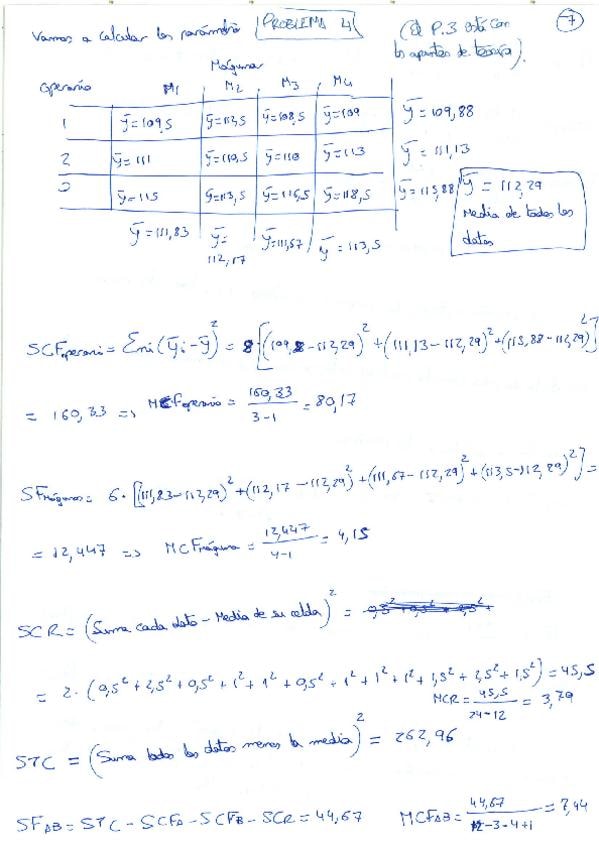 Vamos a calcular los parámetros PROBLEMA 4 (El P.3 está con los apuntes de teoría). -7-
Máquinas
Operario M1 M2 M3 M4
1 ȳ=109,5 ȳ=112,5 ȳ=108,5 ȳ=109 ȳ=109,88
2 ȳ=111 ȳ=110,5 ȳ=110 ȳ=113 ȳ=111,13
3 ȳ=115 ȳ=113,5 ȳ=116,5 ȳ=118,5 ȳ=115,88
ȳ=112,29
Media de todos los
datos
ȳ=111,83 ȳ=112,17 ȳ=111,67 ȳ=113,5
SCFoperario = Σni(ȳi-ȳ)² = 8·[(109,8-112,29)²+(111,13-112,29)²+(115,88-112,29)²]
= 160,33 => MCFoperario = 160,33/3-1 = 80,17
SFMáquinas = 6·[(111,83-112,29)²+(112,17-112,29)²+(111,67-112,29)²+(113,5-112,29)²] =
= 12,447 => MCFmáquina = 12,447/4-1 = 4,15
SCR = (Suma cada dato - Media de su celda)² =
= 2·(0,5²+2,5²+0,5²+1²+1²+0,5²+1²+1²+1²+1,5²+2,5²+1,5²) = 45,5
MCR = 45,5/24-12 = 3,79
STC = (Suma todos los datos menos la media)² = 262,96
SFAB = STC - SCFA - SCFB - SCR = 44,67 MCFAB = 44,67/12-3-4+1 = 7,44